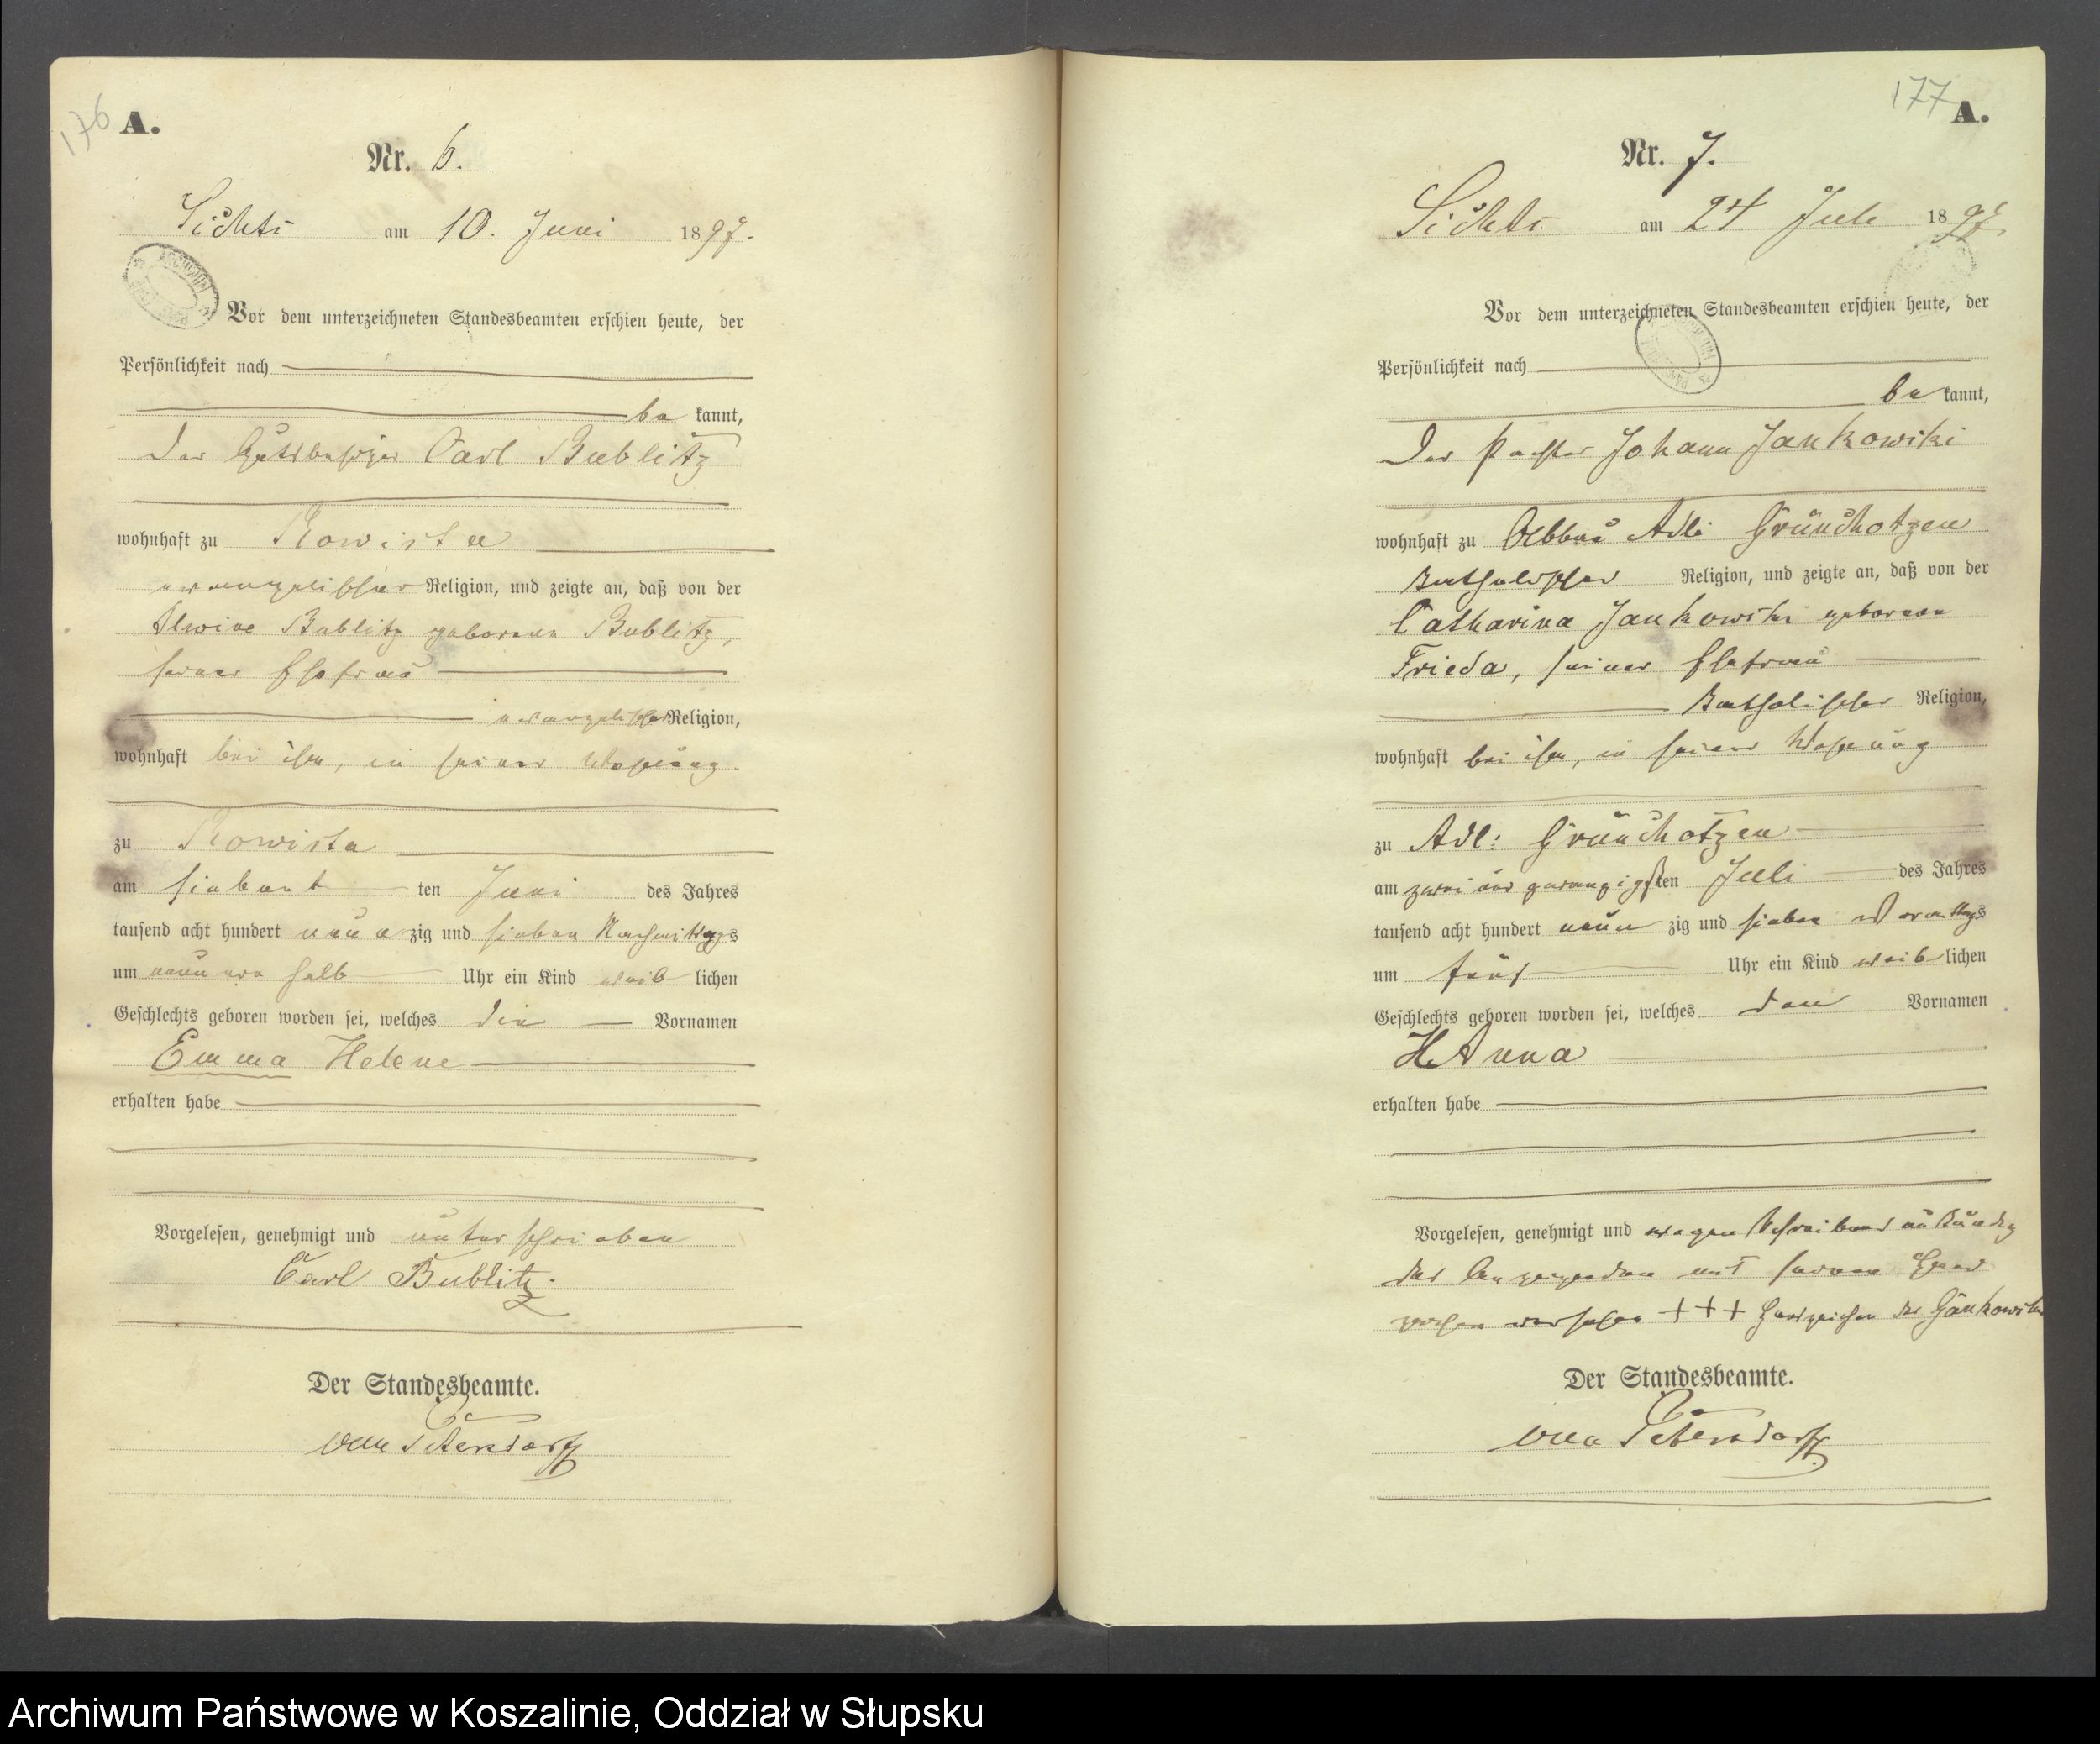 176
A.
Nr. 6.
Lichts am 10. Juni 1897.
Vor dem unterzeichneten Standesbeamten erschien heute, der
Persönlichkeit nach
be kannt,
der Gutsbesitzer Carl Bublitz
wohnhaft zu
evangelischer Religion, und zeigte an, daß von der
Alwine Bublitz geborenen Bublitz,
seiner Ehefrau
evangelischer Religion,
wohnhaft bei ihm, in seiner Wohnung
zu
am siebent ten Juni des Jahres
tausend acht hundert neun zig und sieben Nachmittags
um neun ein halb Uhr ein Kind weib lichen
Geschlechts geboren worden sei, welches die Vornamen
Emma Helene
erhalten habe
Vorgelesen, genehmigt und unterschrieben
Carl Bublitz.
Der Standesbeamte.
von Petersdorff
177
A.
Nr. 7.
Lichts am 24 Juli 1897.
Vor dem unterzeichneten Standesbeamten erschien heute, der
Persönlichkeit nach
be kannt,
Der Pächter Johann Jankowski
wohnhaft zu Abbau Adl: Gründhotzen
katholischer Religion, und zeigte an, daß von der
Catharina Jankowski geborenen
Frieda, seiner Ehefrau
katholischer Religion,
wohnhaft bei ihm, in seiner Wohnung
zu Adl: Gründhotzen
am zwei und zwanzigsten Juli des Jahres
tausend acht hundert neun zig und sieben Vormittags
um fünf Uhr ein Kind weib lichen
Geschlechts geboren worden sei, welches den Vornamen
Anna
erhalten habe
Vorgelesen, genehmigt und wegen Schreibens unkundig
des Anzeigenden mit seinem Hand
zeichen versehen +++ Handzeichen des Jankowski
Der Standesbeamte.
von Petersdorff
Archiwum Państwowe w Koszalinie, Oddział w Słupsku